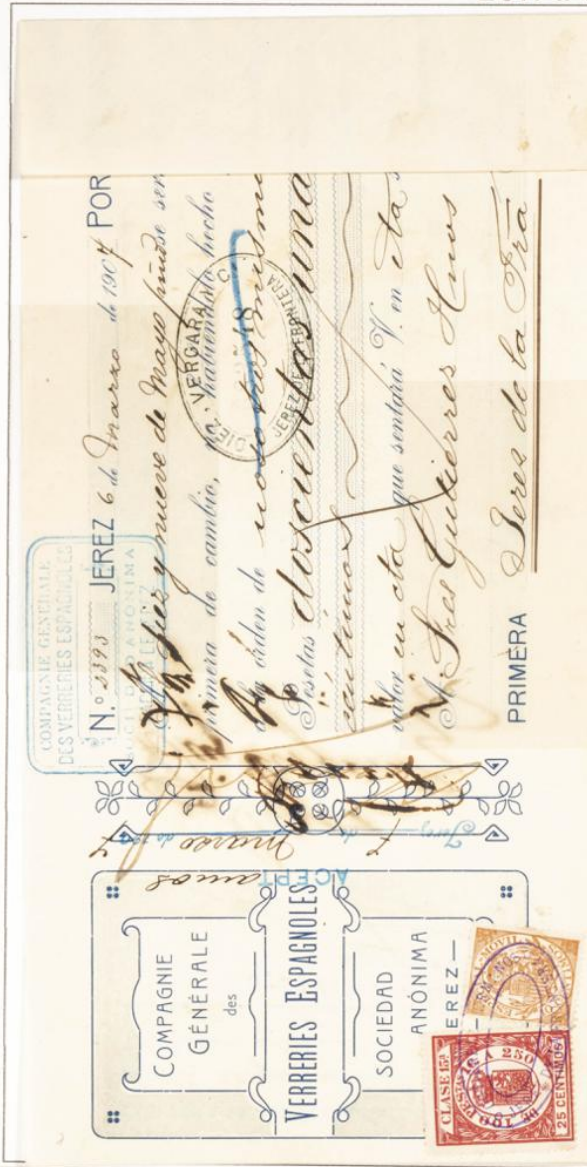 COMPAGNIE
GÉNÉRALE
des
VERRERIES ESPAGNOLES
SOCIEDAD
ANÓNIMA
JEREZ
CLASE 15ª
25 CENTIMOS
MOVIL
ACEPT amos
Jerez 7 de marzo de 1907
COMPAGNIE GENERALE
DES VERRERIES ESPAGNOLES
SOCIEDAD ANÓNIMA
JEREZ
N.º 2393 JEREZ 6 de Marzo de 1907 POR
diez y nueve de Mayo
primera de cambio, no habiendolo hecho
órden de nosotros mismos
Pesetas doscientas una
céntimos
valor en cta que sentará V. en cta
Sres Gutierres Hnos
PRIMERA Jeres de la Fra
DIEZ, VERGARA Y C.
JEREZ DE LA FRONTERA